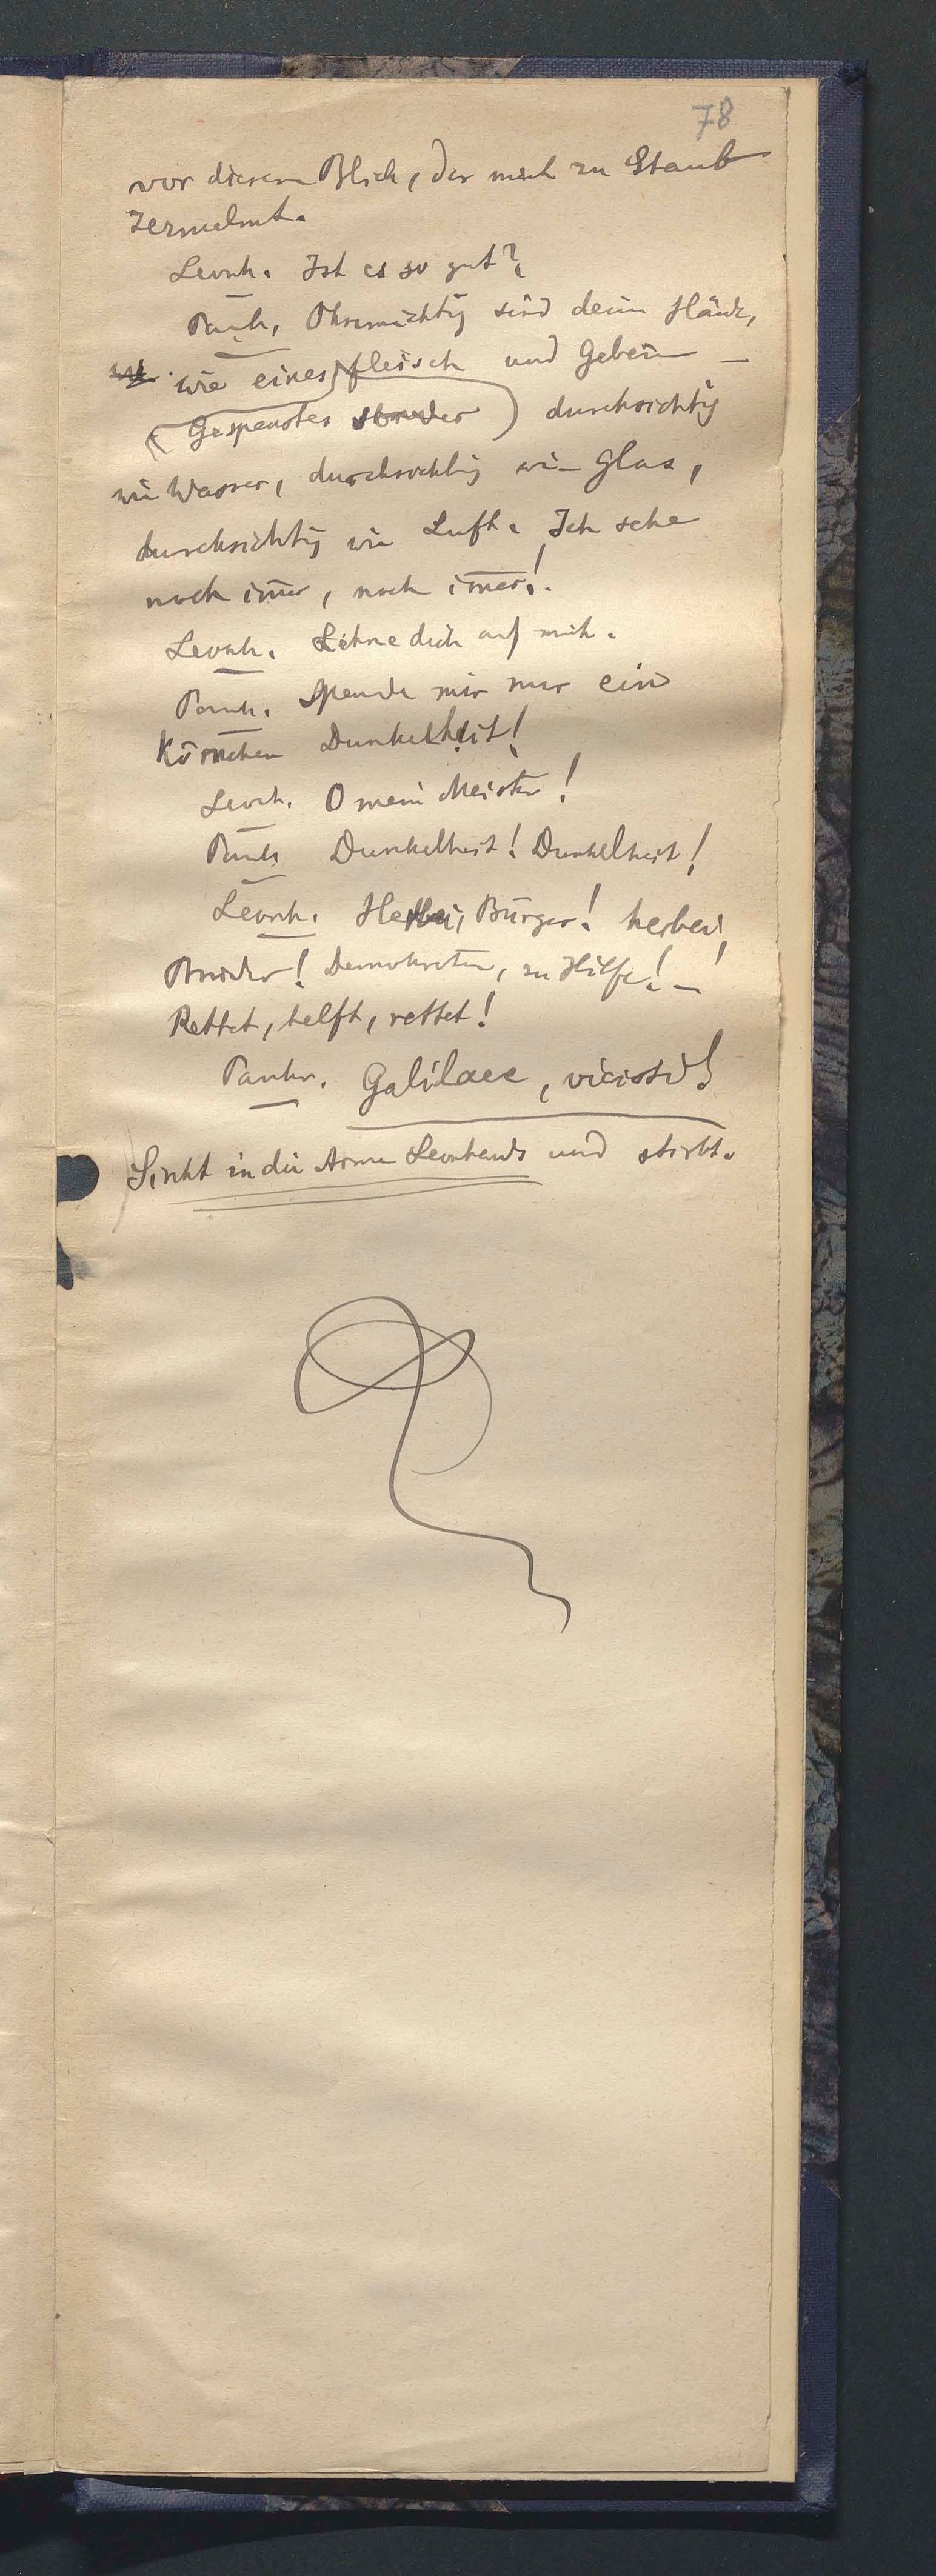 78
vor diesem Blick, der mich zu Staub
zermalmt.
Leonh. Ist es so gut?
Pank. Ohnmächtig sind deine Hände,
wie eines Fleisch und Gebein —
(Gespenstes) durchsichtig
wie Wasser, durchsichtig wie Glas,
durchsichtig wie Luft. Ich sehe
noch im̅er, noch im̅er!
Leonh. Lehne dich auf mich.
Pank. Spende mir nur ein
Körnchen Dunkelheit!
Leonh. O mein Meister!
Pank. Dunkelheit! Dunkelheit!
Leonh. Herbei, Bürger! herbei,
Brüder! Demokraten, zu Hilfe! — !
Rettet, helft, rettet!
Pankr. Galilaee, vicisti!
Sinkt in die Arme Leonhards und stirbt.